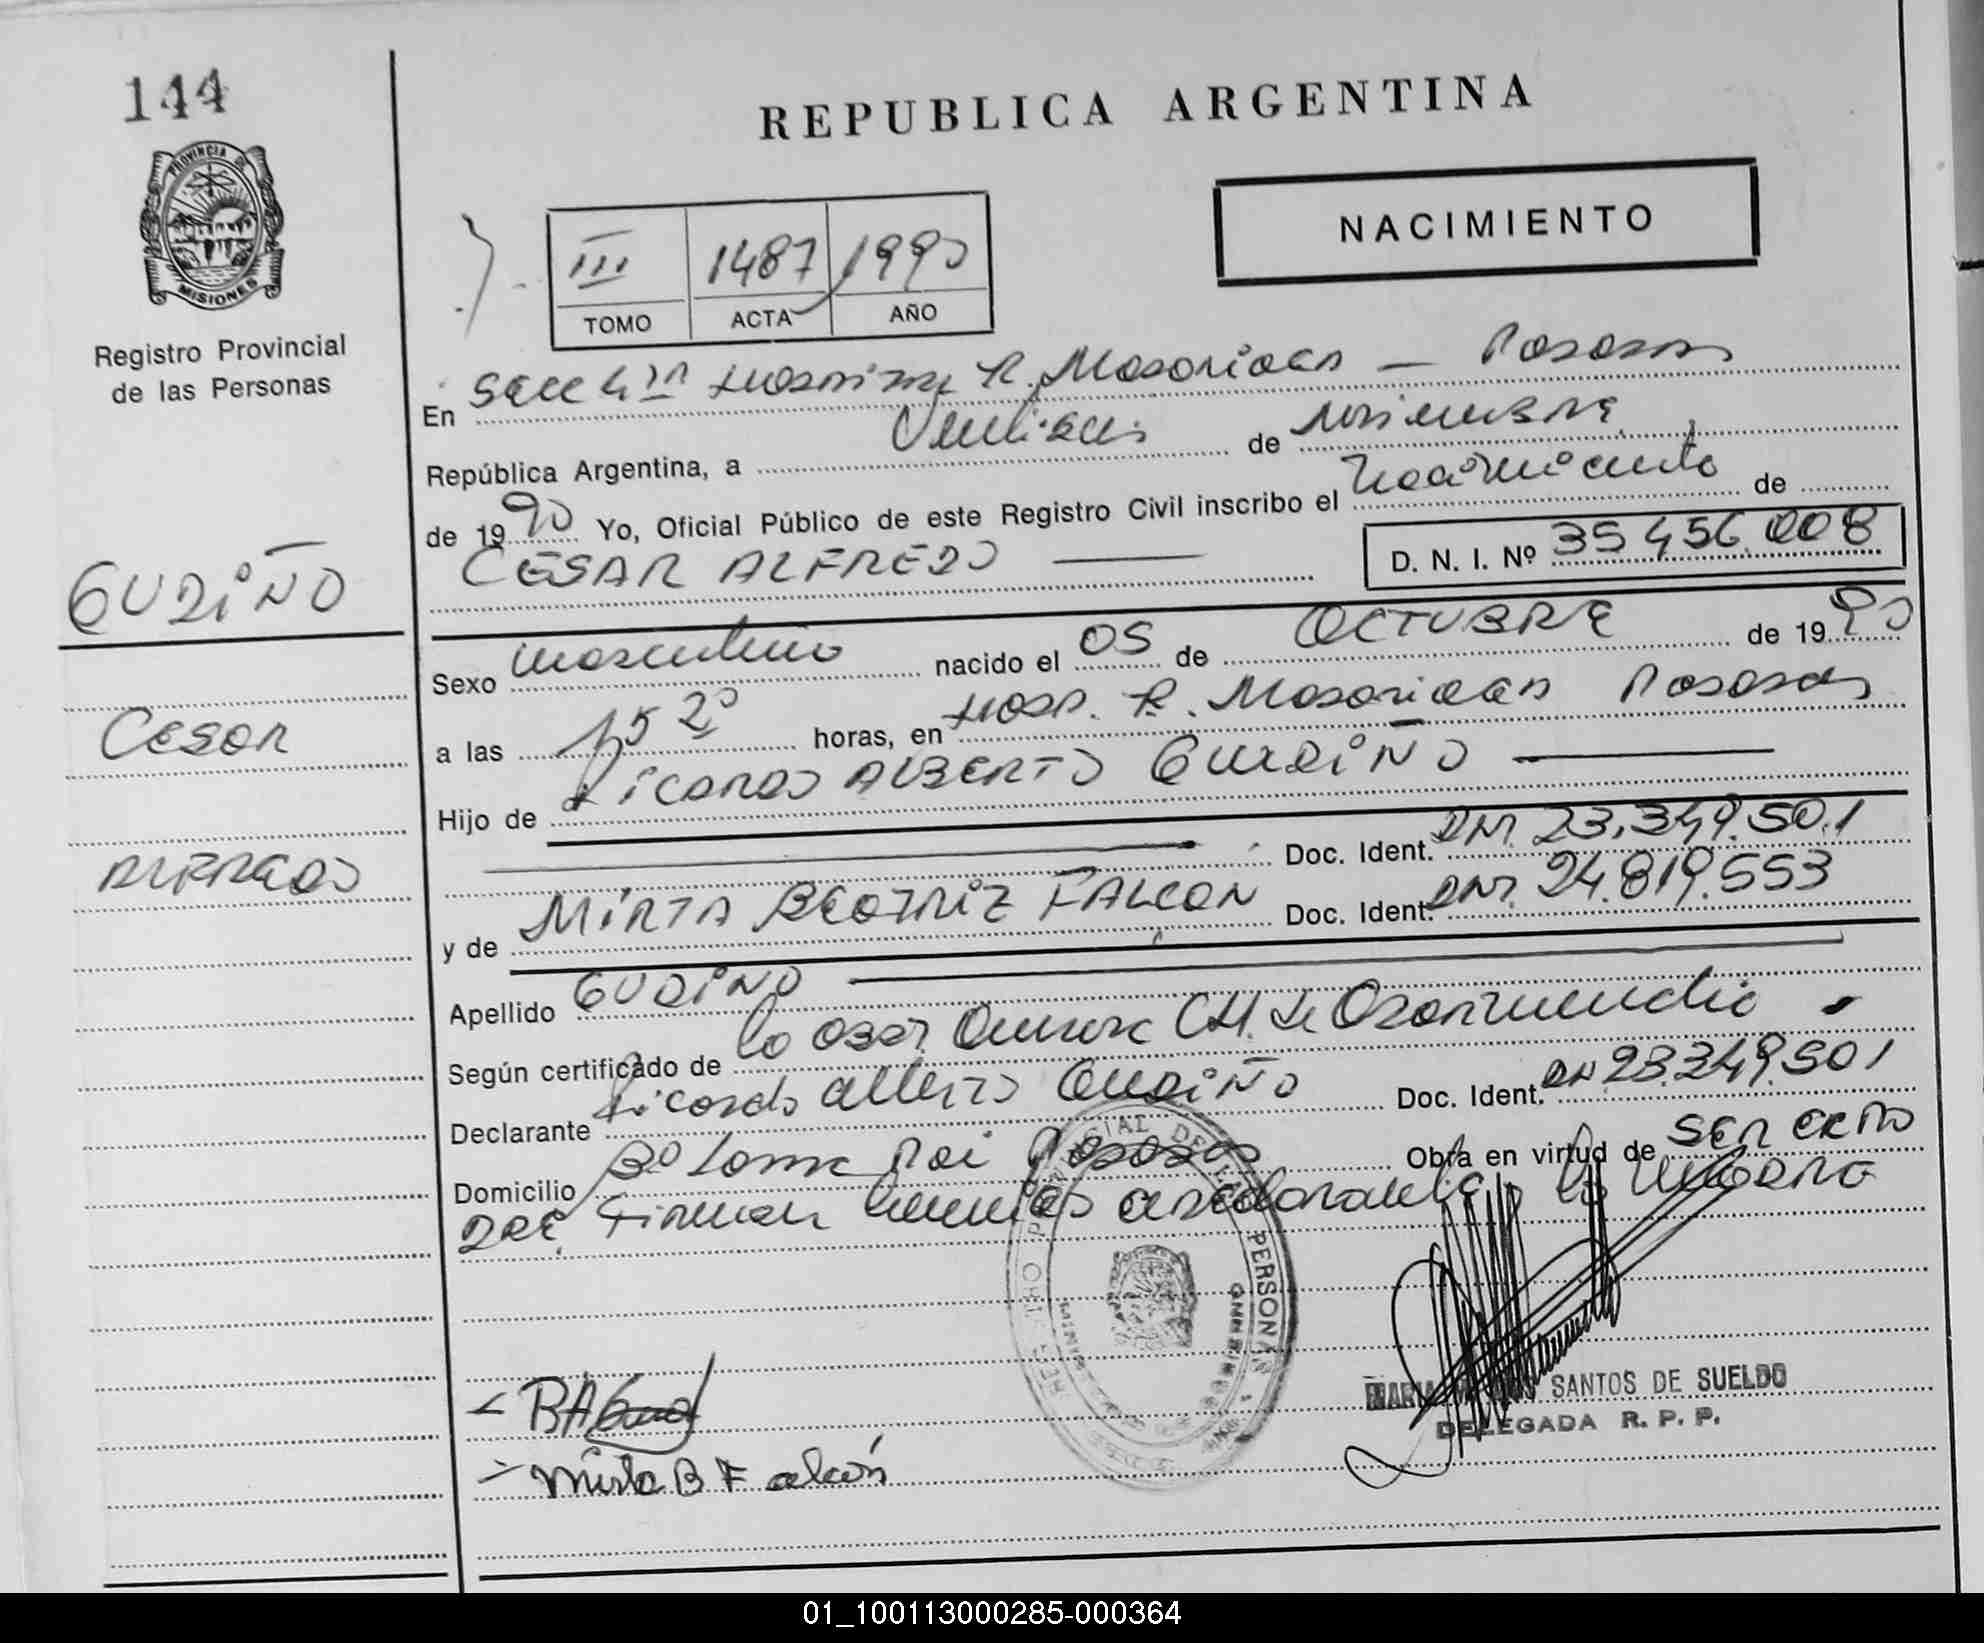 144
REPUBLICA ARGENTINA
PROVINCIA DE
MISIONES
NACIMIENTO
III 1487 1990
TOMO ACTA AÑO
Registro Provincial
de las Personas
En Secc 4ta R. Madariaga — Posadas
República Argentina, a de Noviembre
de 1990 Yo, Oficial Público de este Registro Civil inscribo el Nacimiento de
CESAR ALFREDO D. N. I. Nº 35456.008
GUDIÑO
Sexo masculino nacido el 05 de OCTUBRE de 1990
Cesar
a las 15 20 horas, en Hosp. R. Madariaga Posadas
Hijo de Ricardo ALBERTO GUDIÑO
Doc. Ident. DNI. 23.349.501
ALFREDO
y de MIRTA BEATRIZ FALCON Doc. Ident. DNI. 24.819.553
Apellido GUDIÑO
Según certificado de la Obst. CH. de
Declarante Ricardo Alberto GUDIÑO Doc. Ident. DNI 23.349.501
Domicilio Bº Loma Poi Posadas Obra en virtud de SER
Firman
PERSONAS
BAGud
Mirta B Falcón
MARIA SANTOS DE SUELDO
DELEGADA R. P. P.
01_100113000285-000364